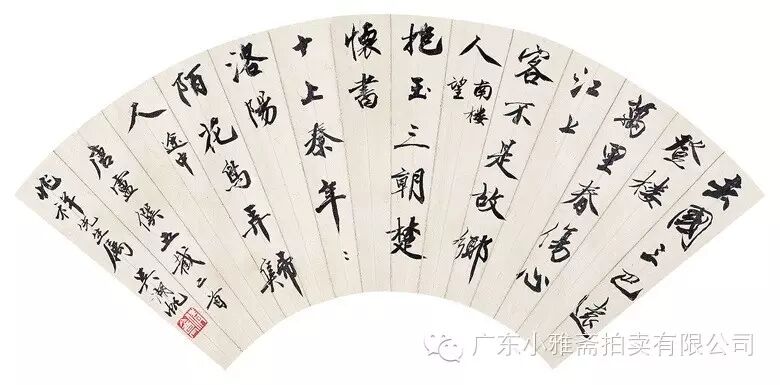 去國三巴遠
登樓
萬里春傷心
江上
客不是故鄉
人南樓望
抱玉三朝楚
懷書
十上秦年〻
洛陽
陌花鳥弄歸
人途中
唐盧僎五截二首
兆祥先生屬吳湖帆
广东小雅斋拍卖有限公司